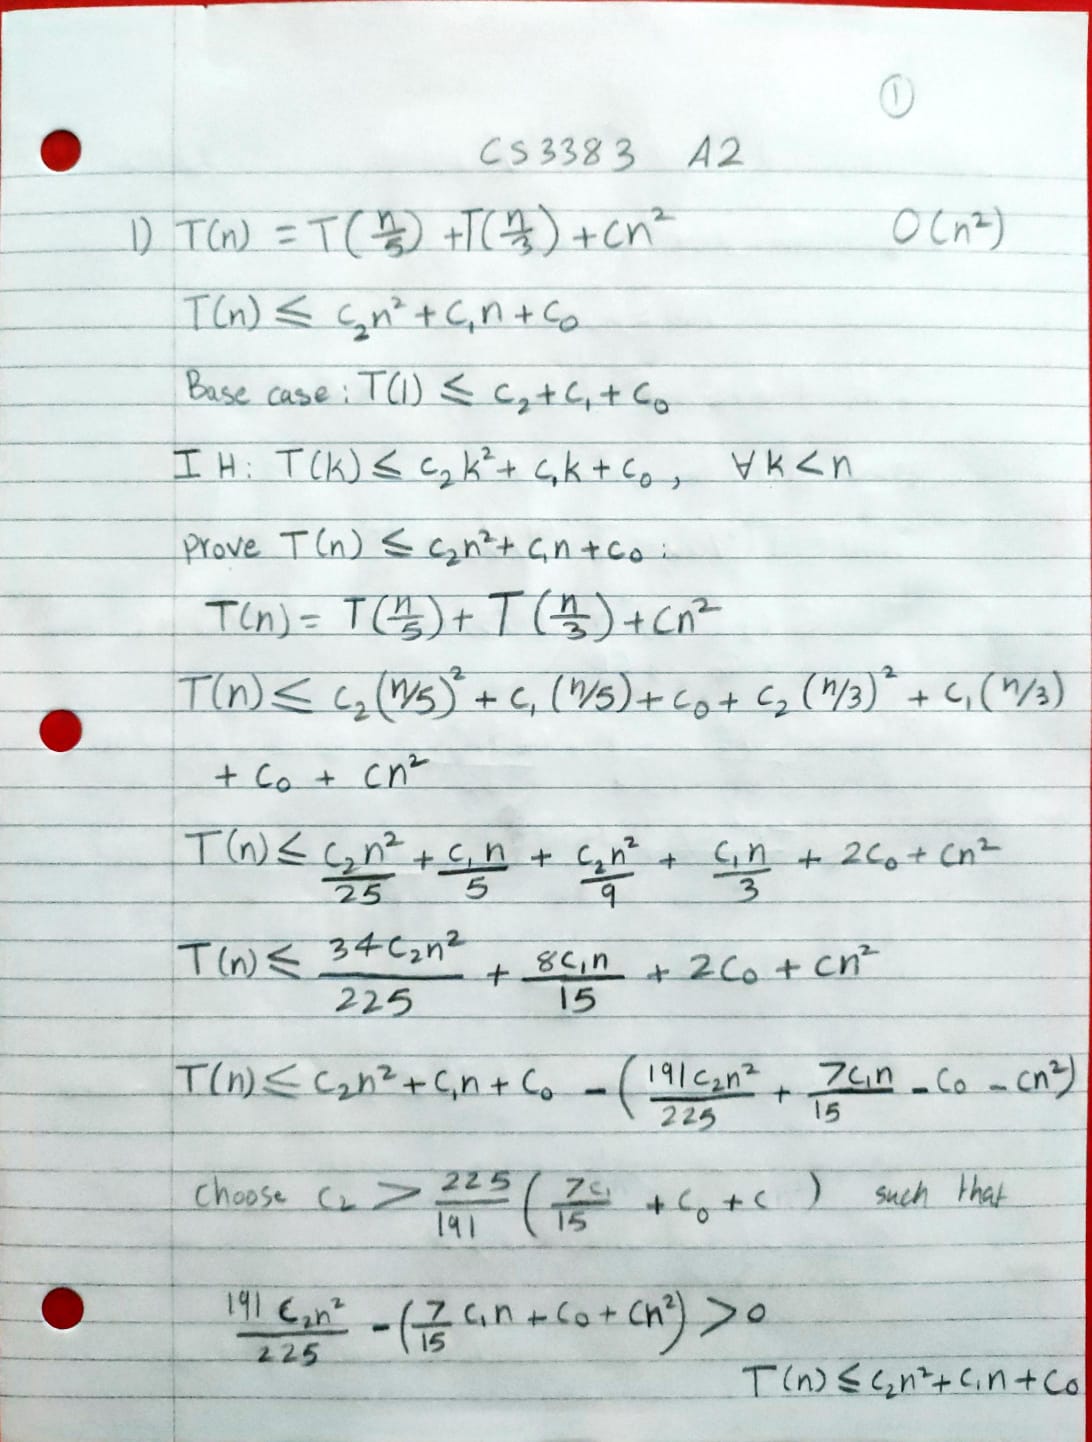 ①
CS3383 A2
1) T(n) = T(n/5) + T(n/3) + cn² O(n²)
T(n) ≤ c₂n² + c₁n + c₀
Base case: T(1) ≤ c₂ + c₁ + c₀
IH: T(k) ≤ c₂k² + c₁k + c₀, ∀k<n
prove T(n) ≤ c₂n² + c₁n + c₀:
T(n) = T(n/5) + T(n/3) + cn²
T(n) ≤ c₂(n/5)² + c₁(n/5) + c₀ + c₂(n/3)² + c₁(n/3)
+ c₀ + cn²
T(n) ≤ c₂n²/25 + c₁n/5 + c₂n²/9 + c₁n/3 + 2c₀ + cn²
T(n) ≤ 34c₂n²/225 + 8c₁n/15 + 2c₀ + cn²
T(n) ≤ c₂n² + c₁n + c₀ - (191c₂n²/225 + 7c₁n/15 - c₀ - cn²)
choose c₂ > 225/191 (7c₁/15 + c₀ + c) such that
191c₂n²/225 - (7/15 c₁n + c₀ + cn²) > 0
T(n) ≤ c₂n² + c₁n + c₀